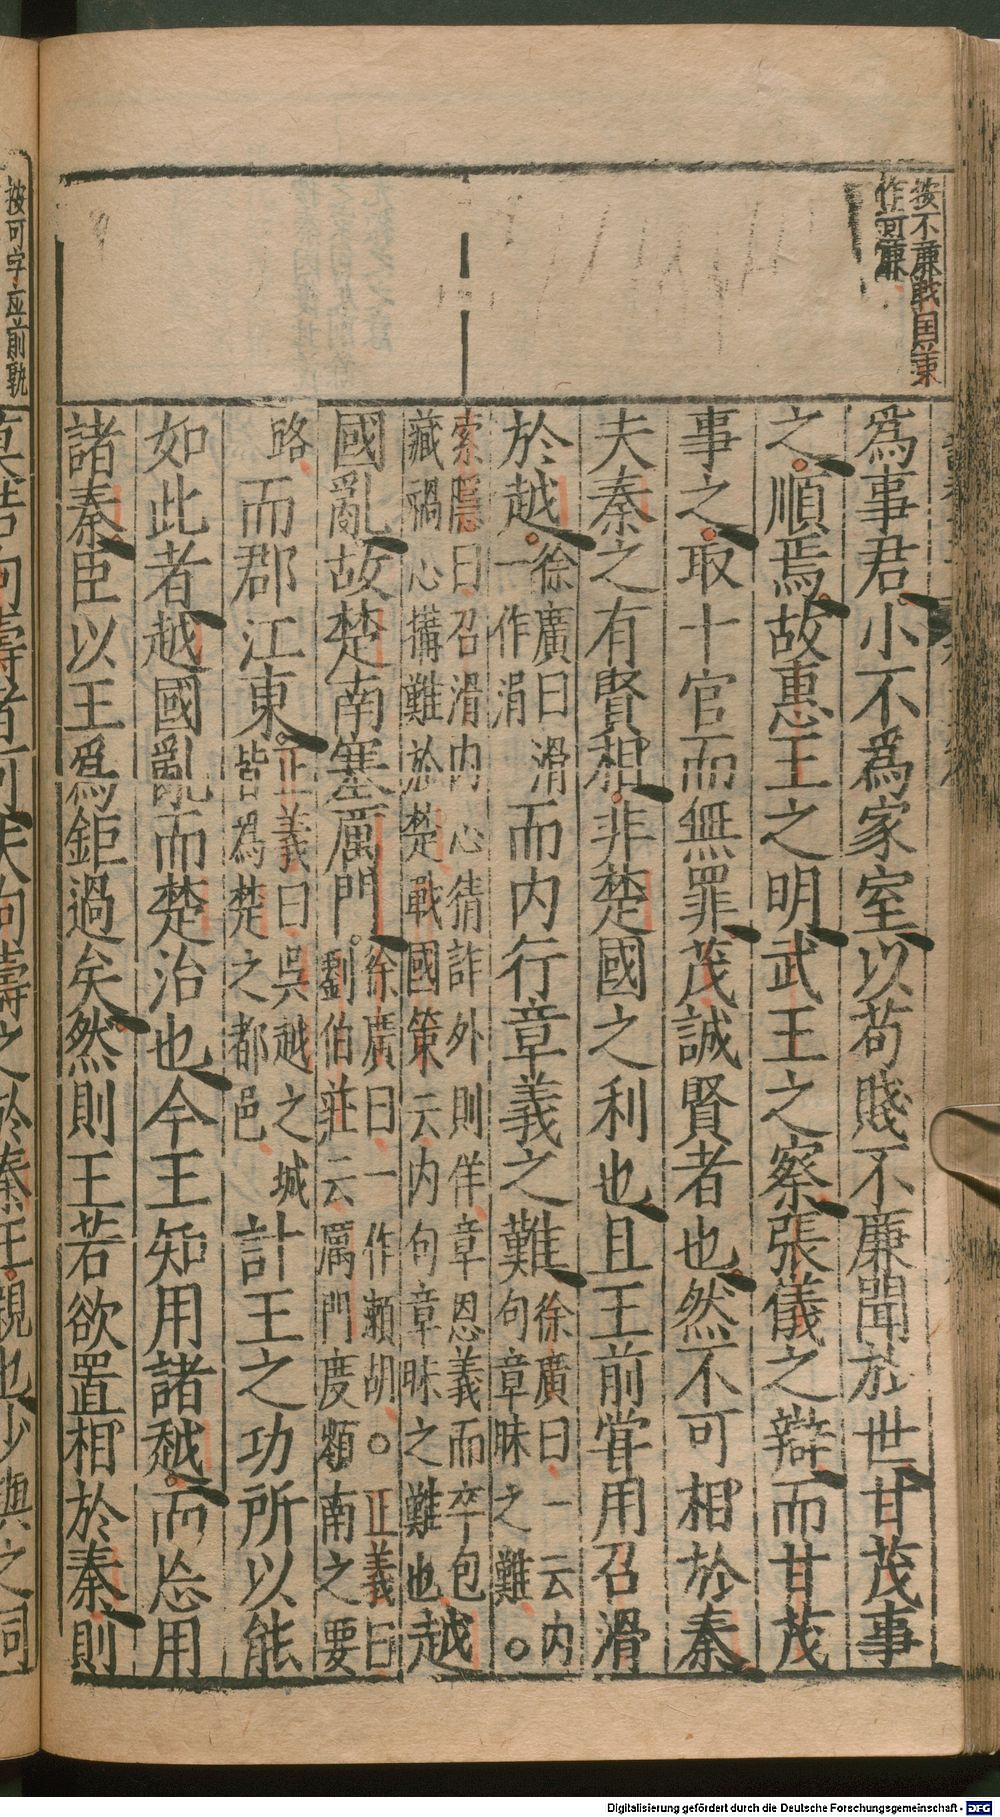 按不廉戰国策
作苛廉
為事君小不為家室以苟賤不廉聞於世甘茂事
之順焉故惠王之明武王之察張儀之辯而甘茂
事之取十官而無罪茂誠賢者也然不可相於秦
夫秦之有賢相非楚國之利也且王前甞用召滑
於越徐廣曰滑一作涓而内行章義之難徐廣曰一云内句章昧之難○
索隱曰召滑内心猜詐外則佯章恩義而卒包藏禍心搆難於楚戰國策云内句章昧之難也越
國亂故楚南塞厲門徐廣曰一作瀬胡○正義曰劉伯莊云厲門度嶺南之要
路而郡江東正義曰吳越之城皆為楚之都邑計王之功所以能
如此者越國亂而楚治也今王知用諸越而忘用
諸秦臣以王爲鉅過矣然則王若欲置相於秦則
按可字应前孰
莫若向壽者可夫向壽之於秦王親也少與之同
Digitalisierung gefördert durch die Deutsche Forschungsgemeinschaft - DFG